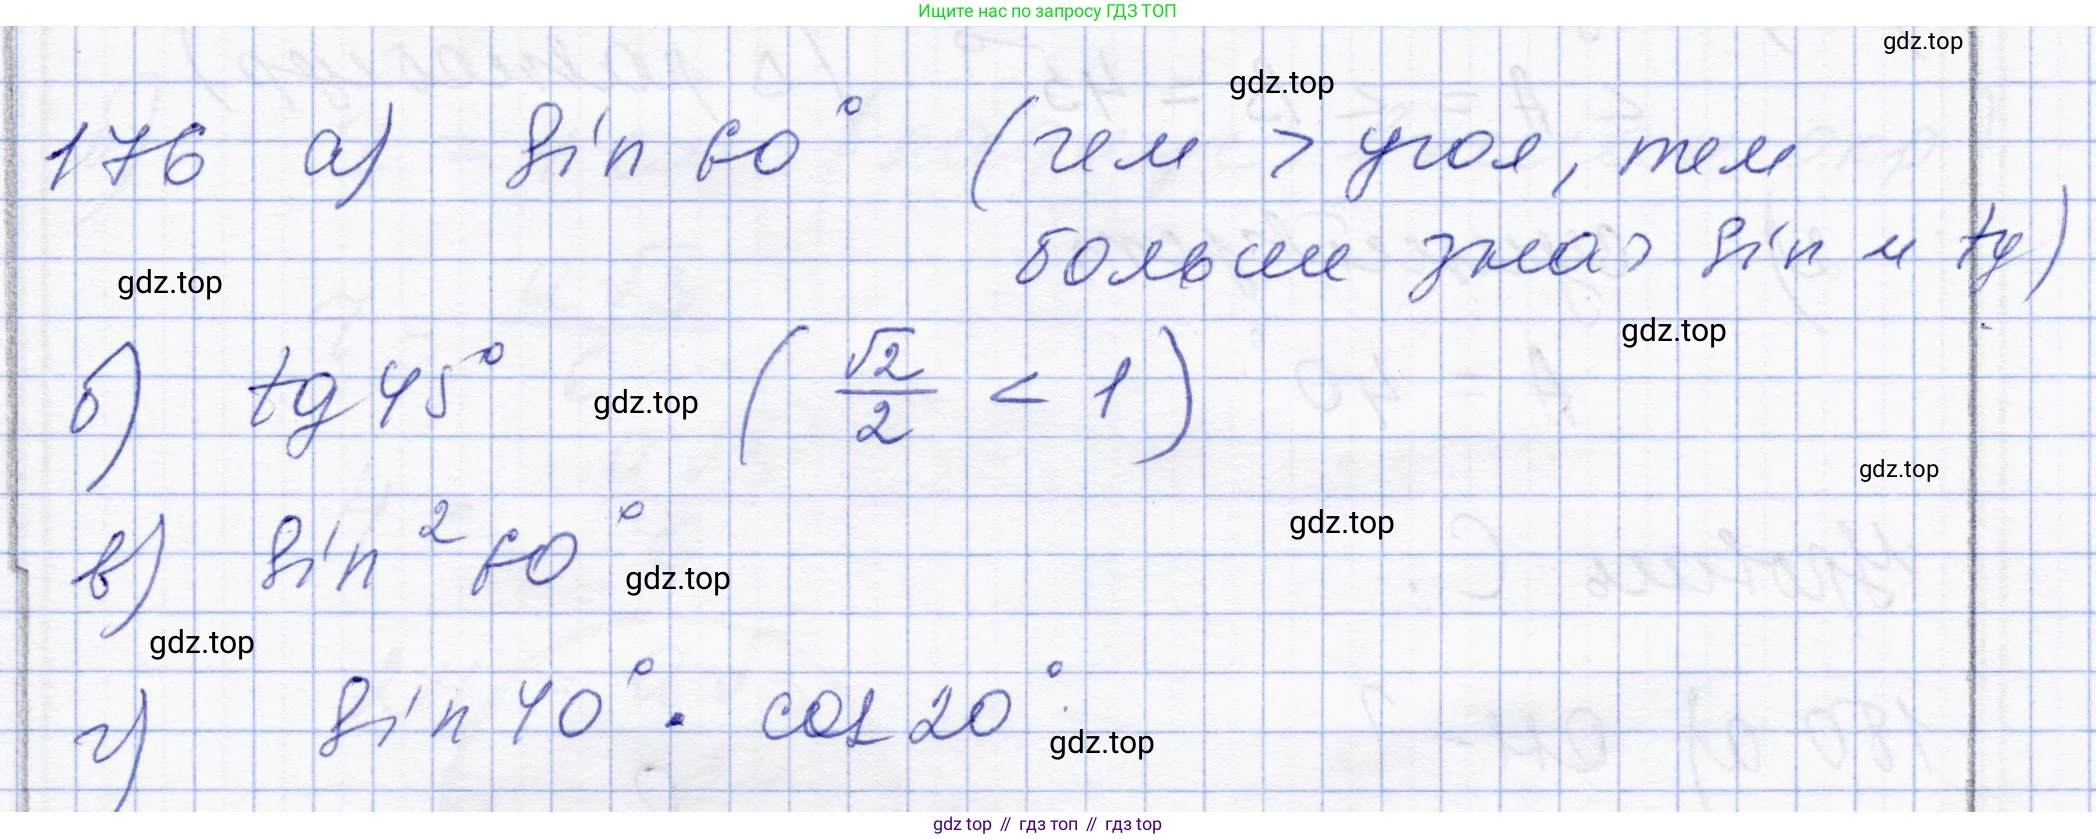 Ищите нас по запросу ГДЗ ТОП
gdz.top
gdz.top
176 а) sin 60° (чем > угол, тем
больше знач sin и tg)
gdz.top
gdz.top
б) tg 45° gdz.top (√2/2 < 1)
gdz.top
gdz.top
в) sin² 60° gdz.top
gdz.top
г) sin 40° · cos 20°
gdz.top
gdz top // гдз топ // gdz top